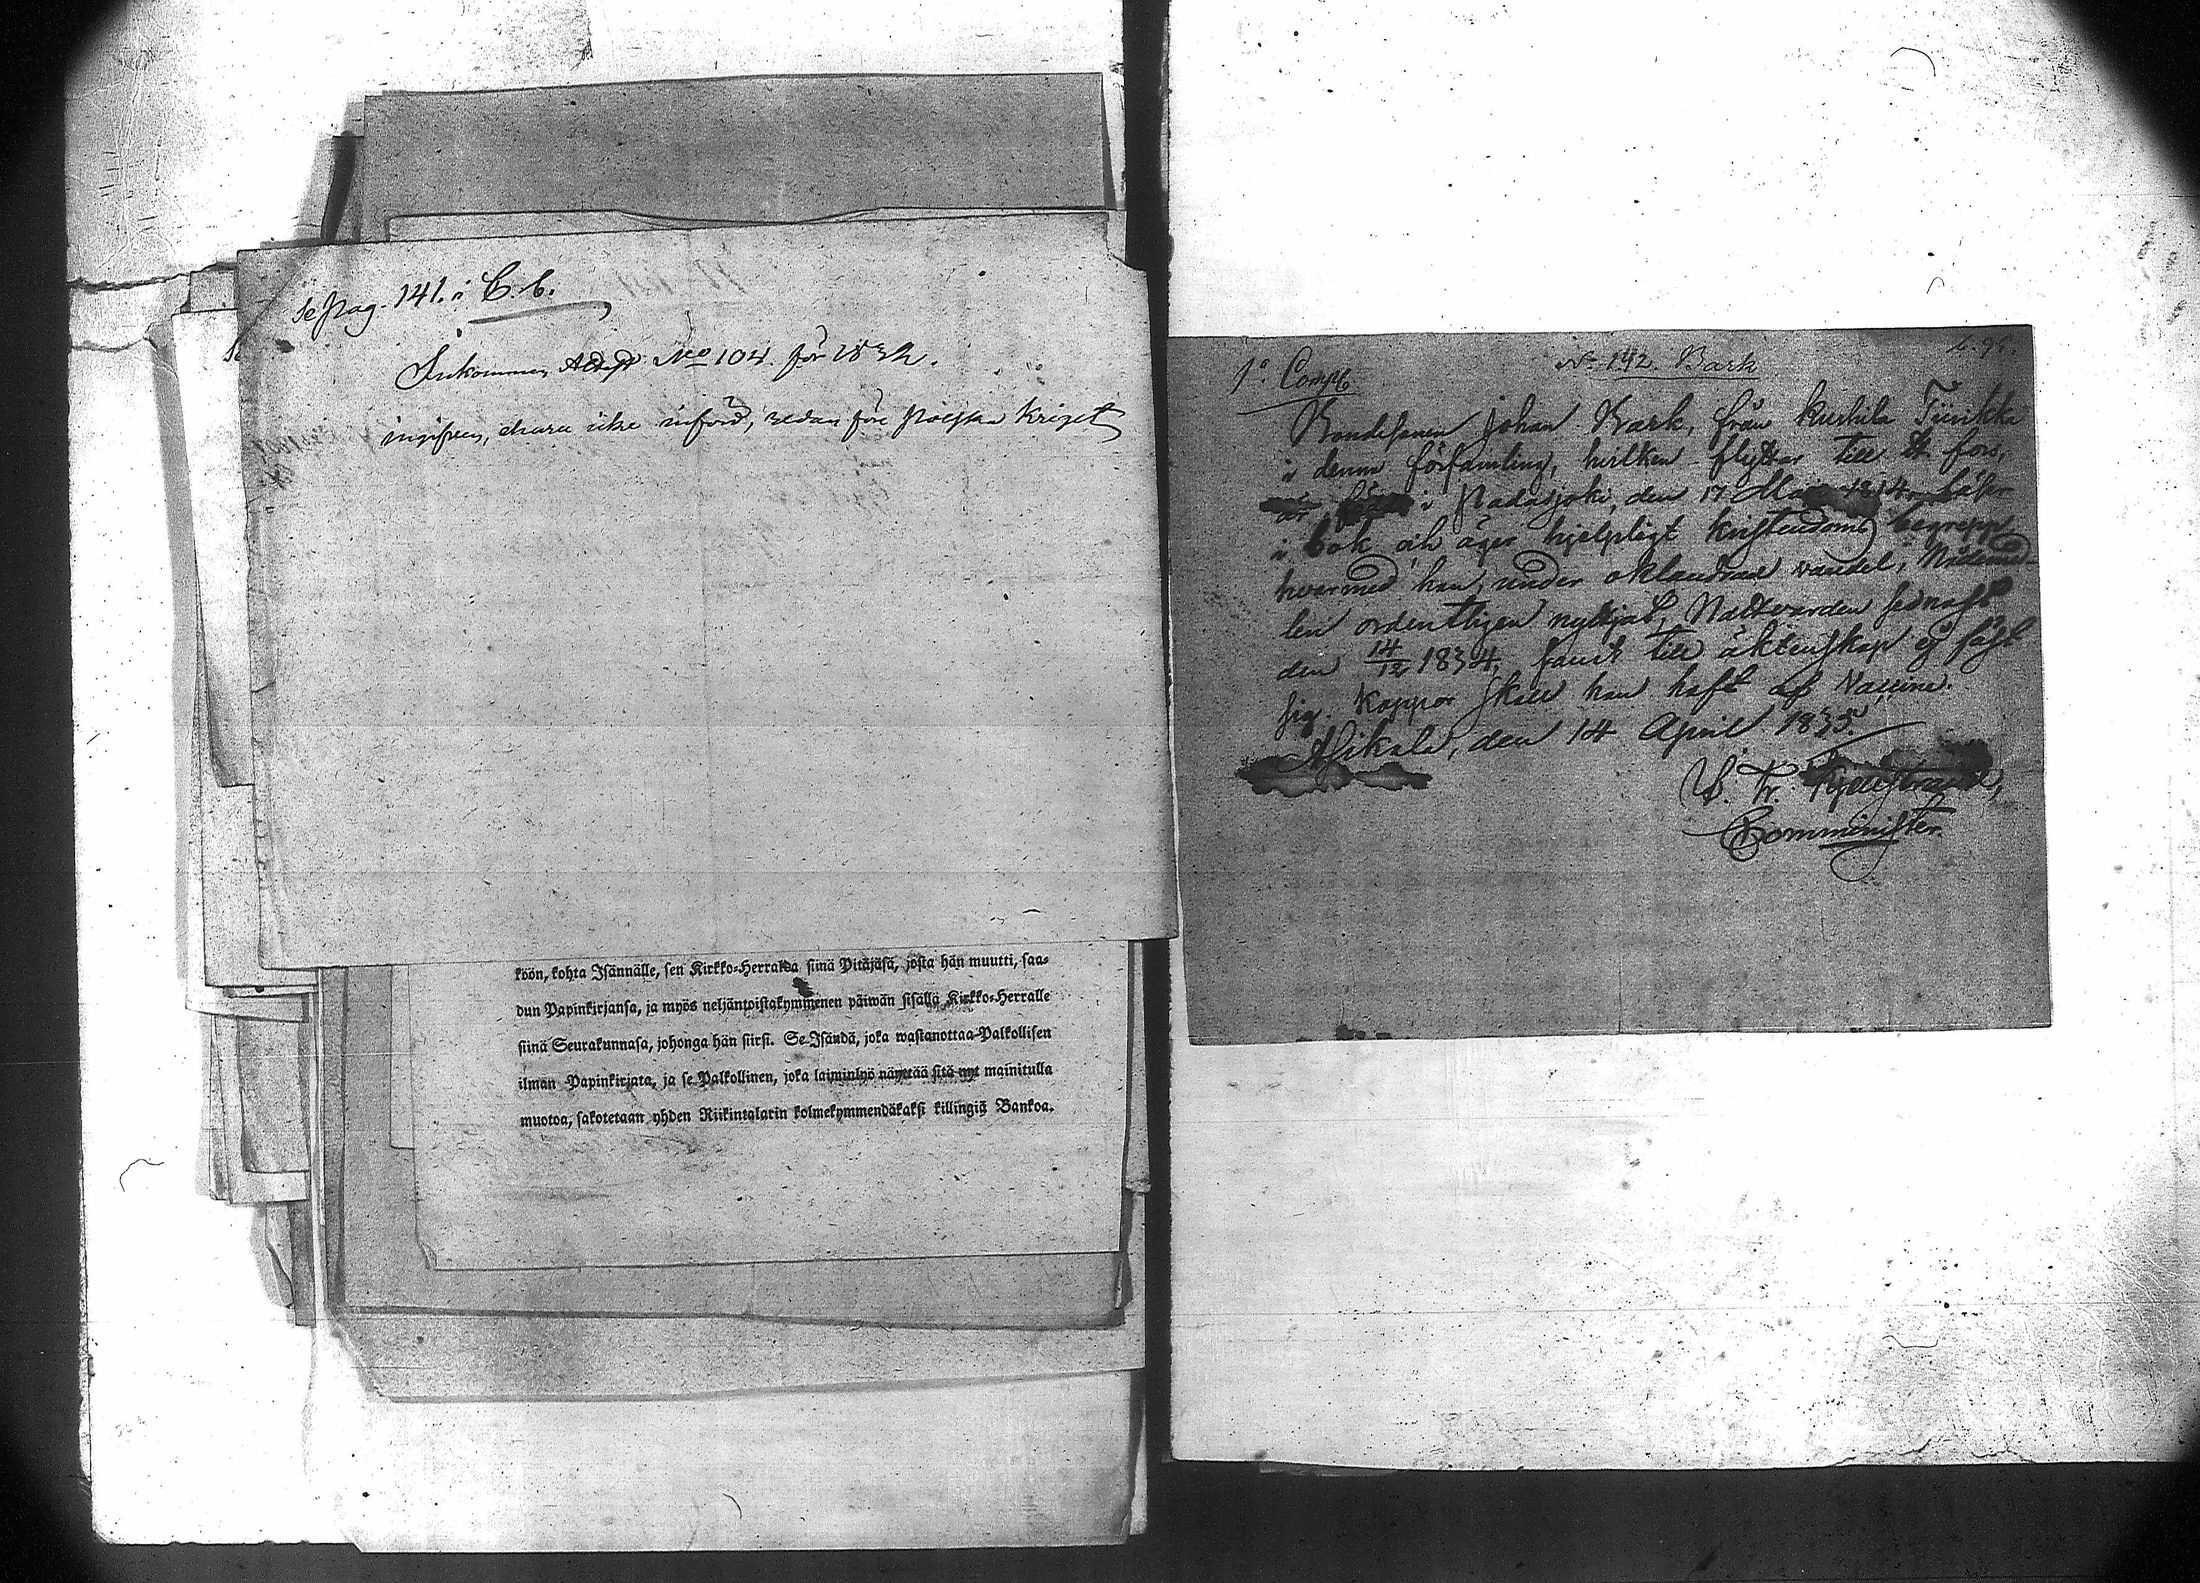 se pag. 141. i C. b.
Inkommen Attest No 104. för 1832.
ingifven, ehuru icke införd, redan före Polska Kriget
köön, kohta Isännälle, sen Kirkko-Herralda siinä Pitäjäsä, josta hän muutti, saa-
dun Papinkirjansa, ja myös neljäntoistakymmenen päiwän sisällä Kirkko-Herralle
siinä Seurakunnasa, johonga hän siirsi. Se Isändä, joka wastanottaa Palkollisen
ilman Papinkirjata, ja se Palkollinen, joka laiminlyö näyttää sitä nyt mainitulla
muotoa, sakotetaan yhden Riikintalarin kolmekymmendäkaksi killingiä Bankoa.
N. 142. Bark
1o. Comp
Bondesonen Johan Bark, från Kurhila Turikka
i denna församling, hvilken flyttar till H. fors,
är född i Padasjoki, den 17 Mars 1814, läser
i bok och äger hjelpligt kristendoms begrepp
hvarmed han under oklandrad vandel, Nådemed-
len ordentligen nyttjat, Nattvarden sednast
den 14/12 1834, samt till äktenskap ej fäst
sig. Koppor skall han haft af Vaccine.
Asikala, den 14 April 1835.
Comminister.